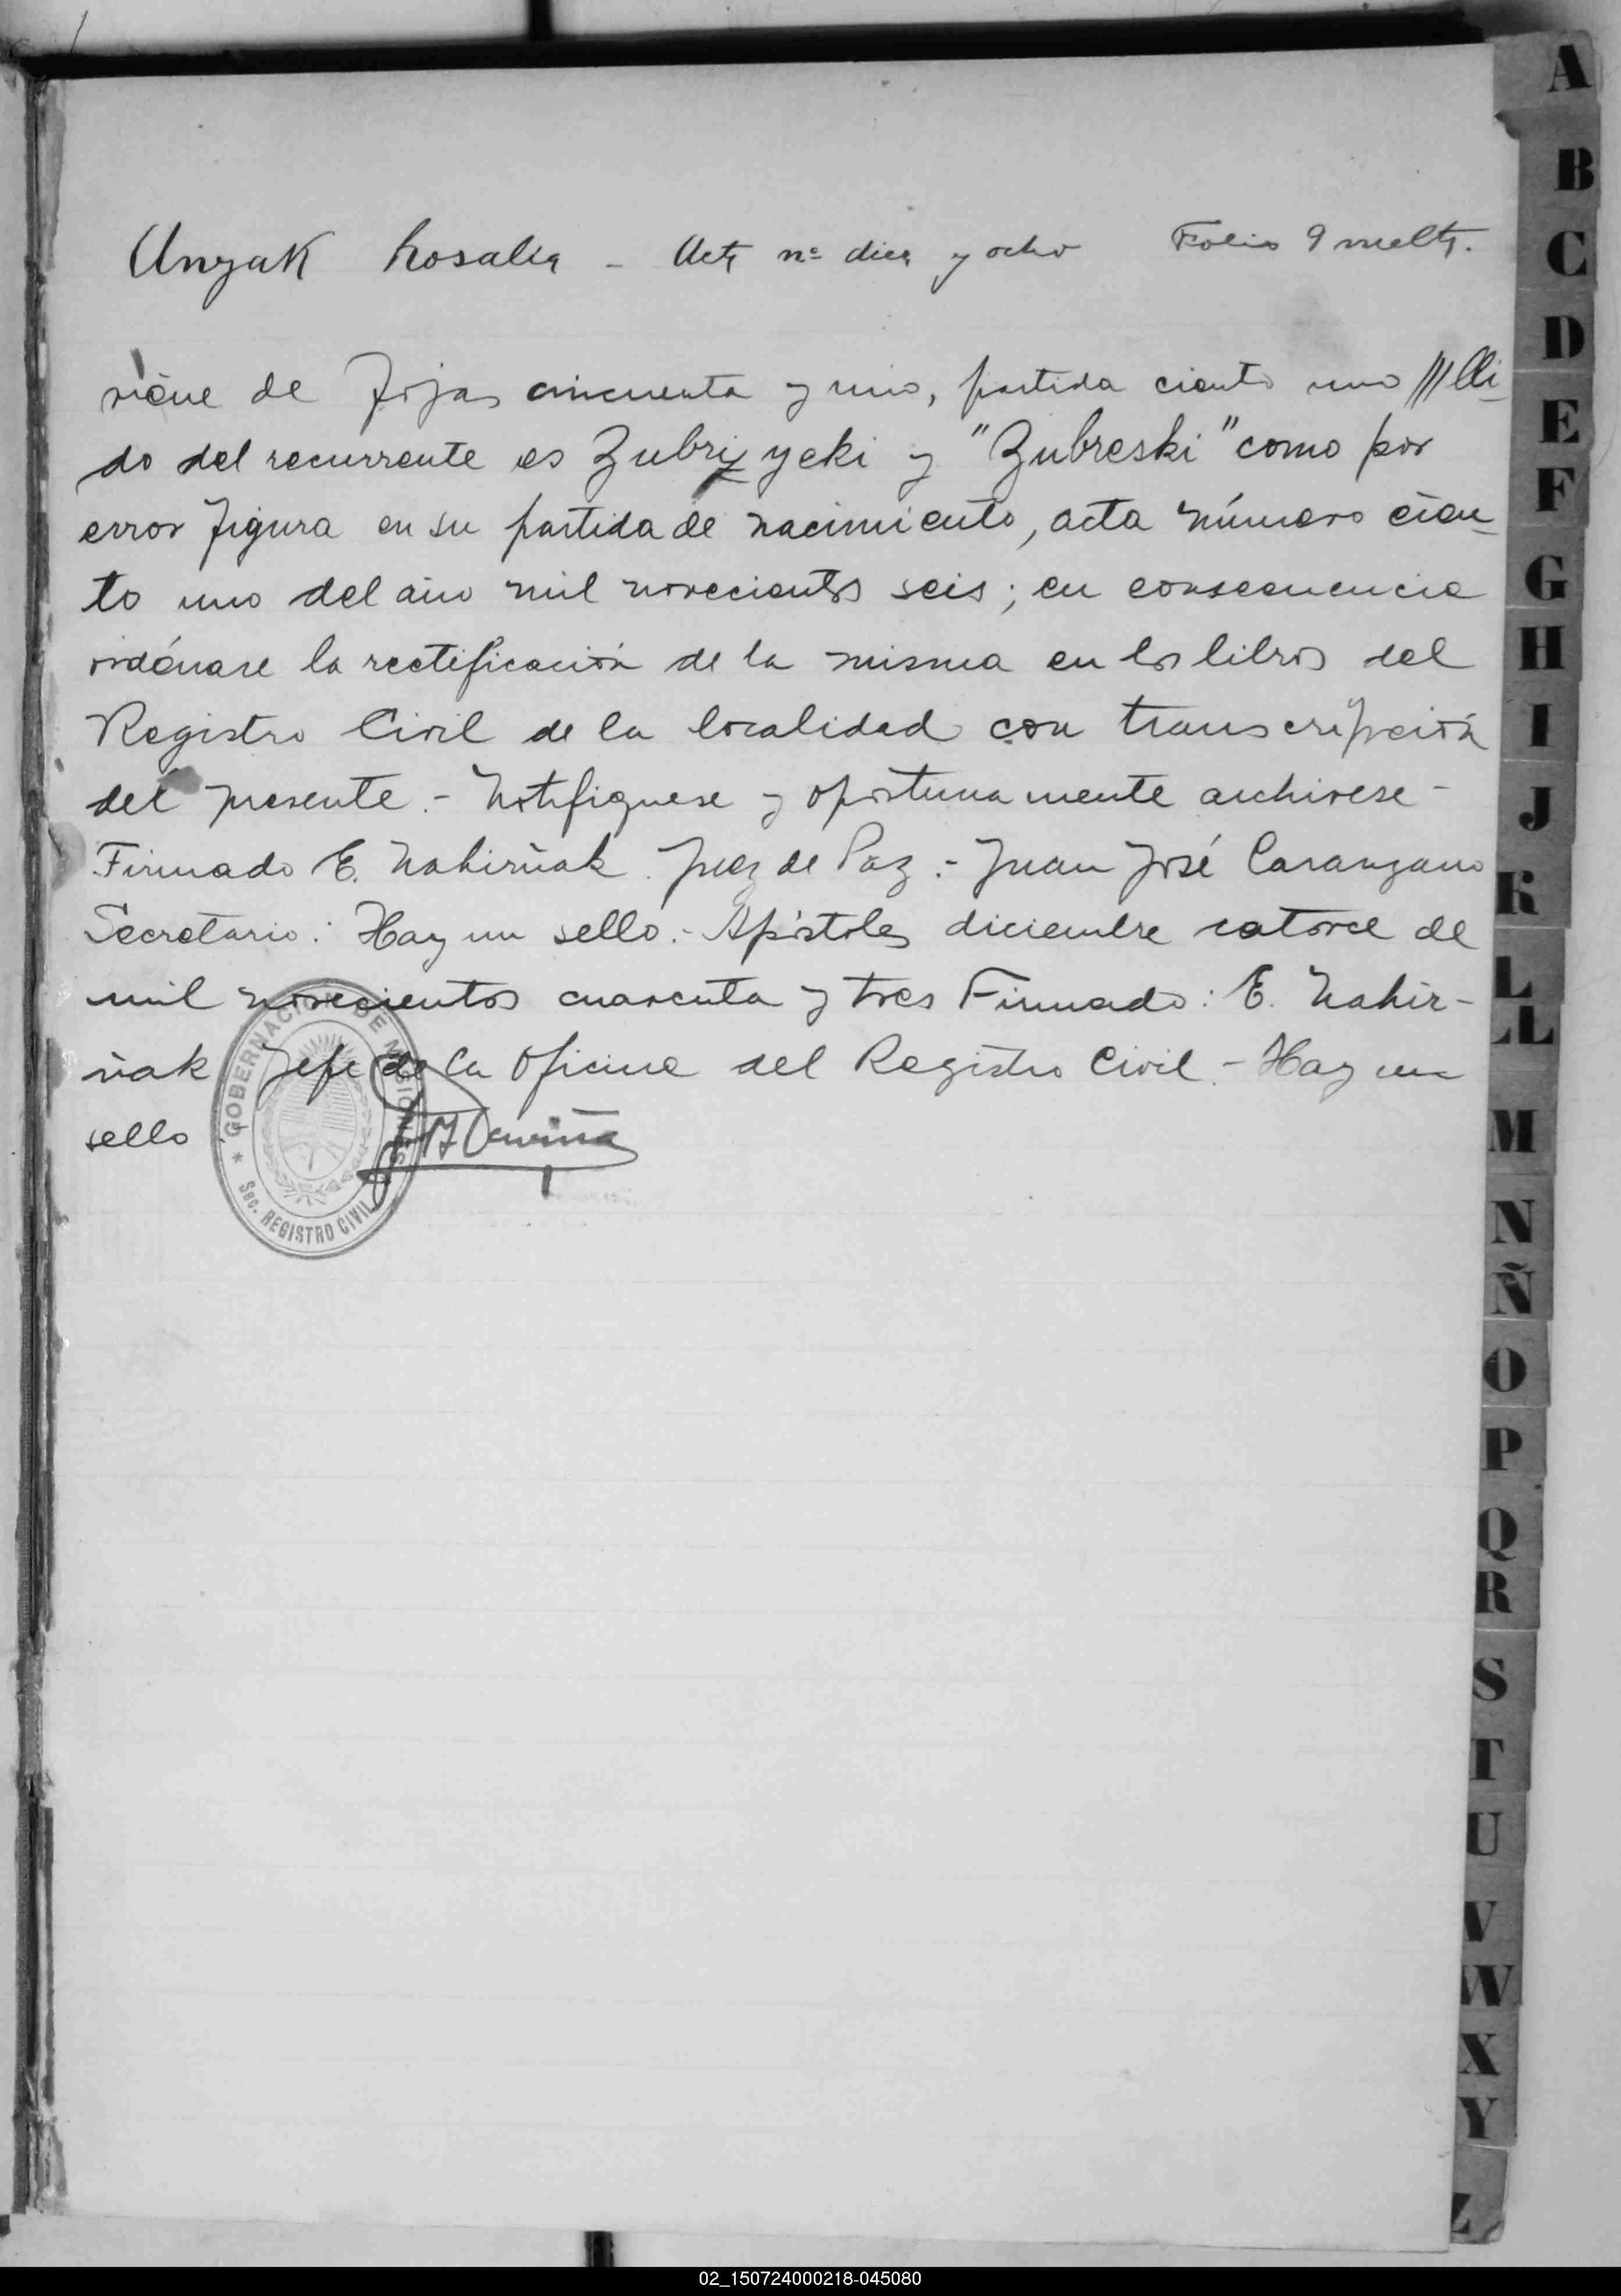 Unzak Rosalia - Acta nº diez y ocho Folio 9 vuelta.
viene de fojas cincuenta y uno, partida ciento uno ///lli-
do del recurrente es Zubrzycki y "Zubreski" como por
error figura en su partida de nacimiento, acta número cien-
to uno del año mil novecientos seis; en consecuencia
ordénase la rectificación de la misma en los libros del
Registro Civil de la localidad con transcripción
del presente.- Notifíquese y oportunamente archivese-
Firmado E. Nahirñak. Juez de Paz.- Juan José Caranzano
Secretario: Hay un sello.- Apóstoles diciembre catorce de
mil novecientos cuarenta y tres Firmado: E. Nahir-
ñak Jefe de la Oficina del Registro Civil.- Hay un
sello
GOBERNACION DE MISIONES
* Sec. REGISTRO CIVIL
A
B
C
D
E
F
G
H
I
J
K
L
LL
M
N
Ñ
O
P
Q
R
S
T
U
V
W
X
Y
Z
02_150724000218-045080